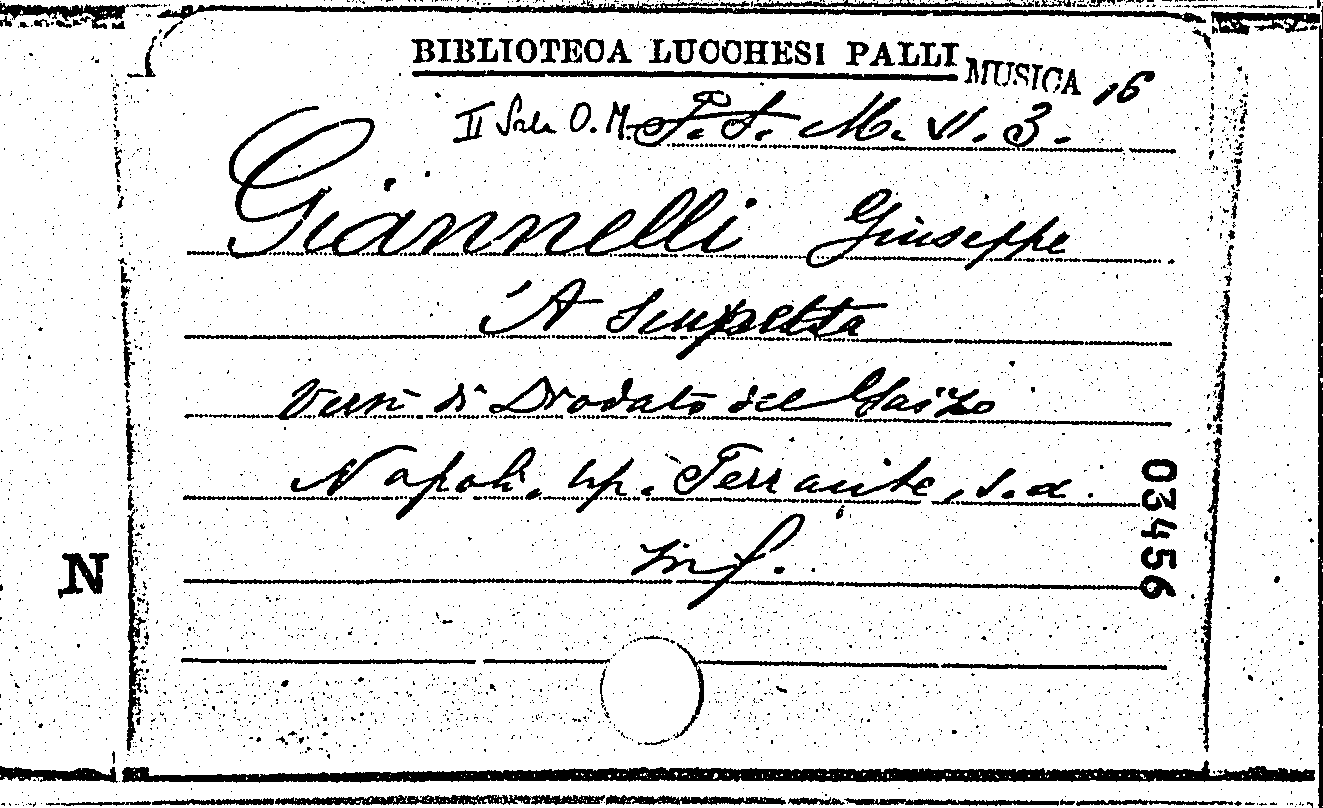 BIBLIOTECA LUCCHESI PALLI
MUSICA 16
II Sala O. M. F. S. M. VI. 3.
Giannelli Giuseppe
'A scupetta
Versi di Diodato del Gaizo
Napoli, tip. Ferrante, s.a.
in f.
03456
N